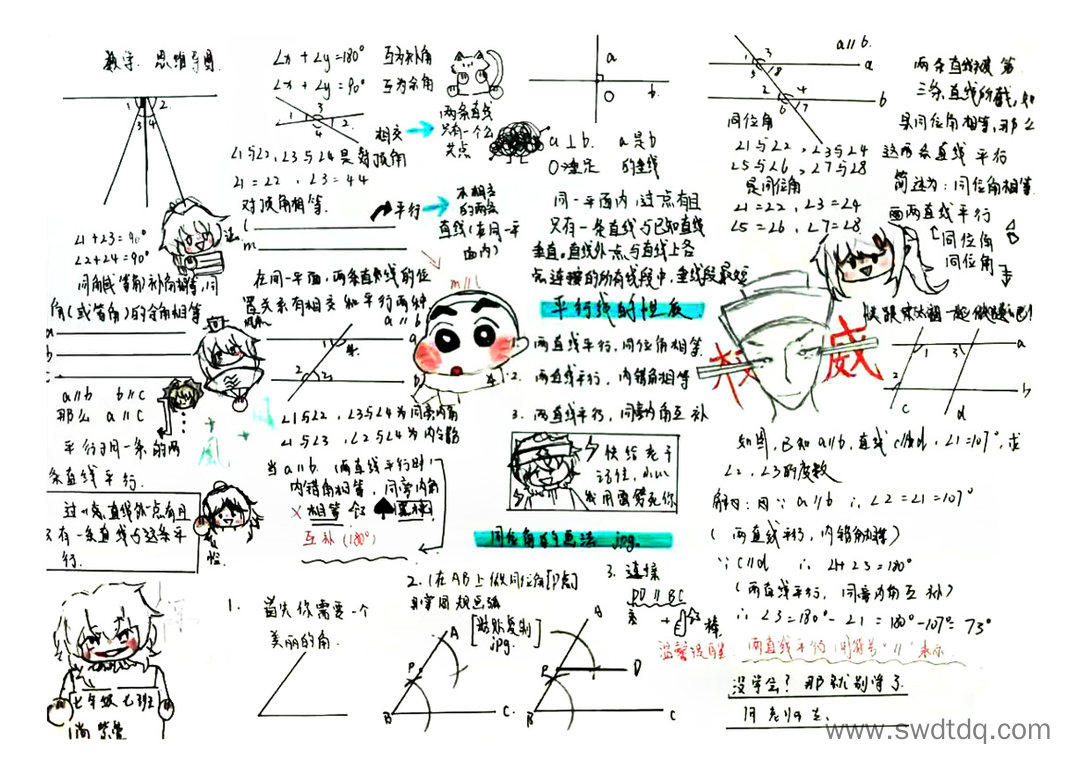 数学 思维导图
1 2
3 4
∠1+∠3=90°
∠2+∠4=90°
同角(或等角)补角相等,同
角(或等角)的余角相等
a
b
c
a∥b b∥c
那么 a∥c
平行于同一条的两
条直线平行.
过一点,直线外一点有且
只有一条直线与这条平
行.
七年级七班
∠x+∠y=180° 互为补角
∠x+∠y=90° 互为余角
3
1 2
4
∠1与∠2,∠3与∠4是对顶角
∠1=∠2,∠3=∠4
对顶角相等.
相交
两条直线
只有一个公
共点
平行
不相交
的两条
直线(在同一平
面内)
l
m
m∥l
在同一平面,两条直线的位
置关系有相交和平行两种
a∥b
a
b
∠1与∠2,∠3与∠4为同旁内角
∠1与∠3,∠2与∠4为内错角
当a∥b.(两直线平行时)
内错角相等,同旁内角
×相等
互补(180°)
a
O b.
a⊥b. a是b
O→垂足 的垂线
同一平面内,过一点有且
只有一条直线与已知直线
垂直.直线外一点与直线上各
点连接的所有线段中,垂线段最短
平行线的性质
1. 两直线平行,同位角相等.
2. 两直线平行,内错角相等
3. 两直线平行,同旁内角互补
快给老子
a∥b.
1 3 a
5 8
2 4 b
6 7
同位角
∠1与∠2,∠3与∠4
∠5与∠6,∠7与∠8
是同位角
∠1=∠2,∠3=∠4
∠5=∠6,∠7=∠8
两条直线被第
三条直线所截,如
果同位角相等,那么
这两条直线平行
简述为:同位角相等
两直线平行
同位角
同位角
权威
1 3 a
2 b
c d
如图,已知a∥b,直线c∥d,∠1=107°,求
∠2,∠3的度数
解:因∵a∥b ∴∠2=∠1=107°
(两直线平行,内错角相等)
∵c∥d ∴∠1+∠3=180°
(两直线平行,同旁内角互补)
∴∠3=180°-∠1=180°-107°=73°
温馨提醒:两直线平行用符号"∥"表示.
没学会?那就别学了
同位角的画法.jpg.
1. 首先你需要一个
美丽的角.
2.(在AB上做同位角[P点]
用圆规画弧
[粘贴复制]
jpg.
A
P
B C.
3. 连接
PD∥BC
A
P D
B C
www.swdtdq.com